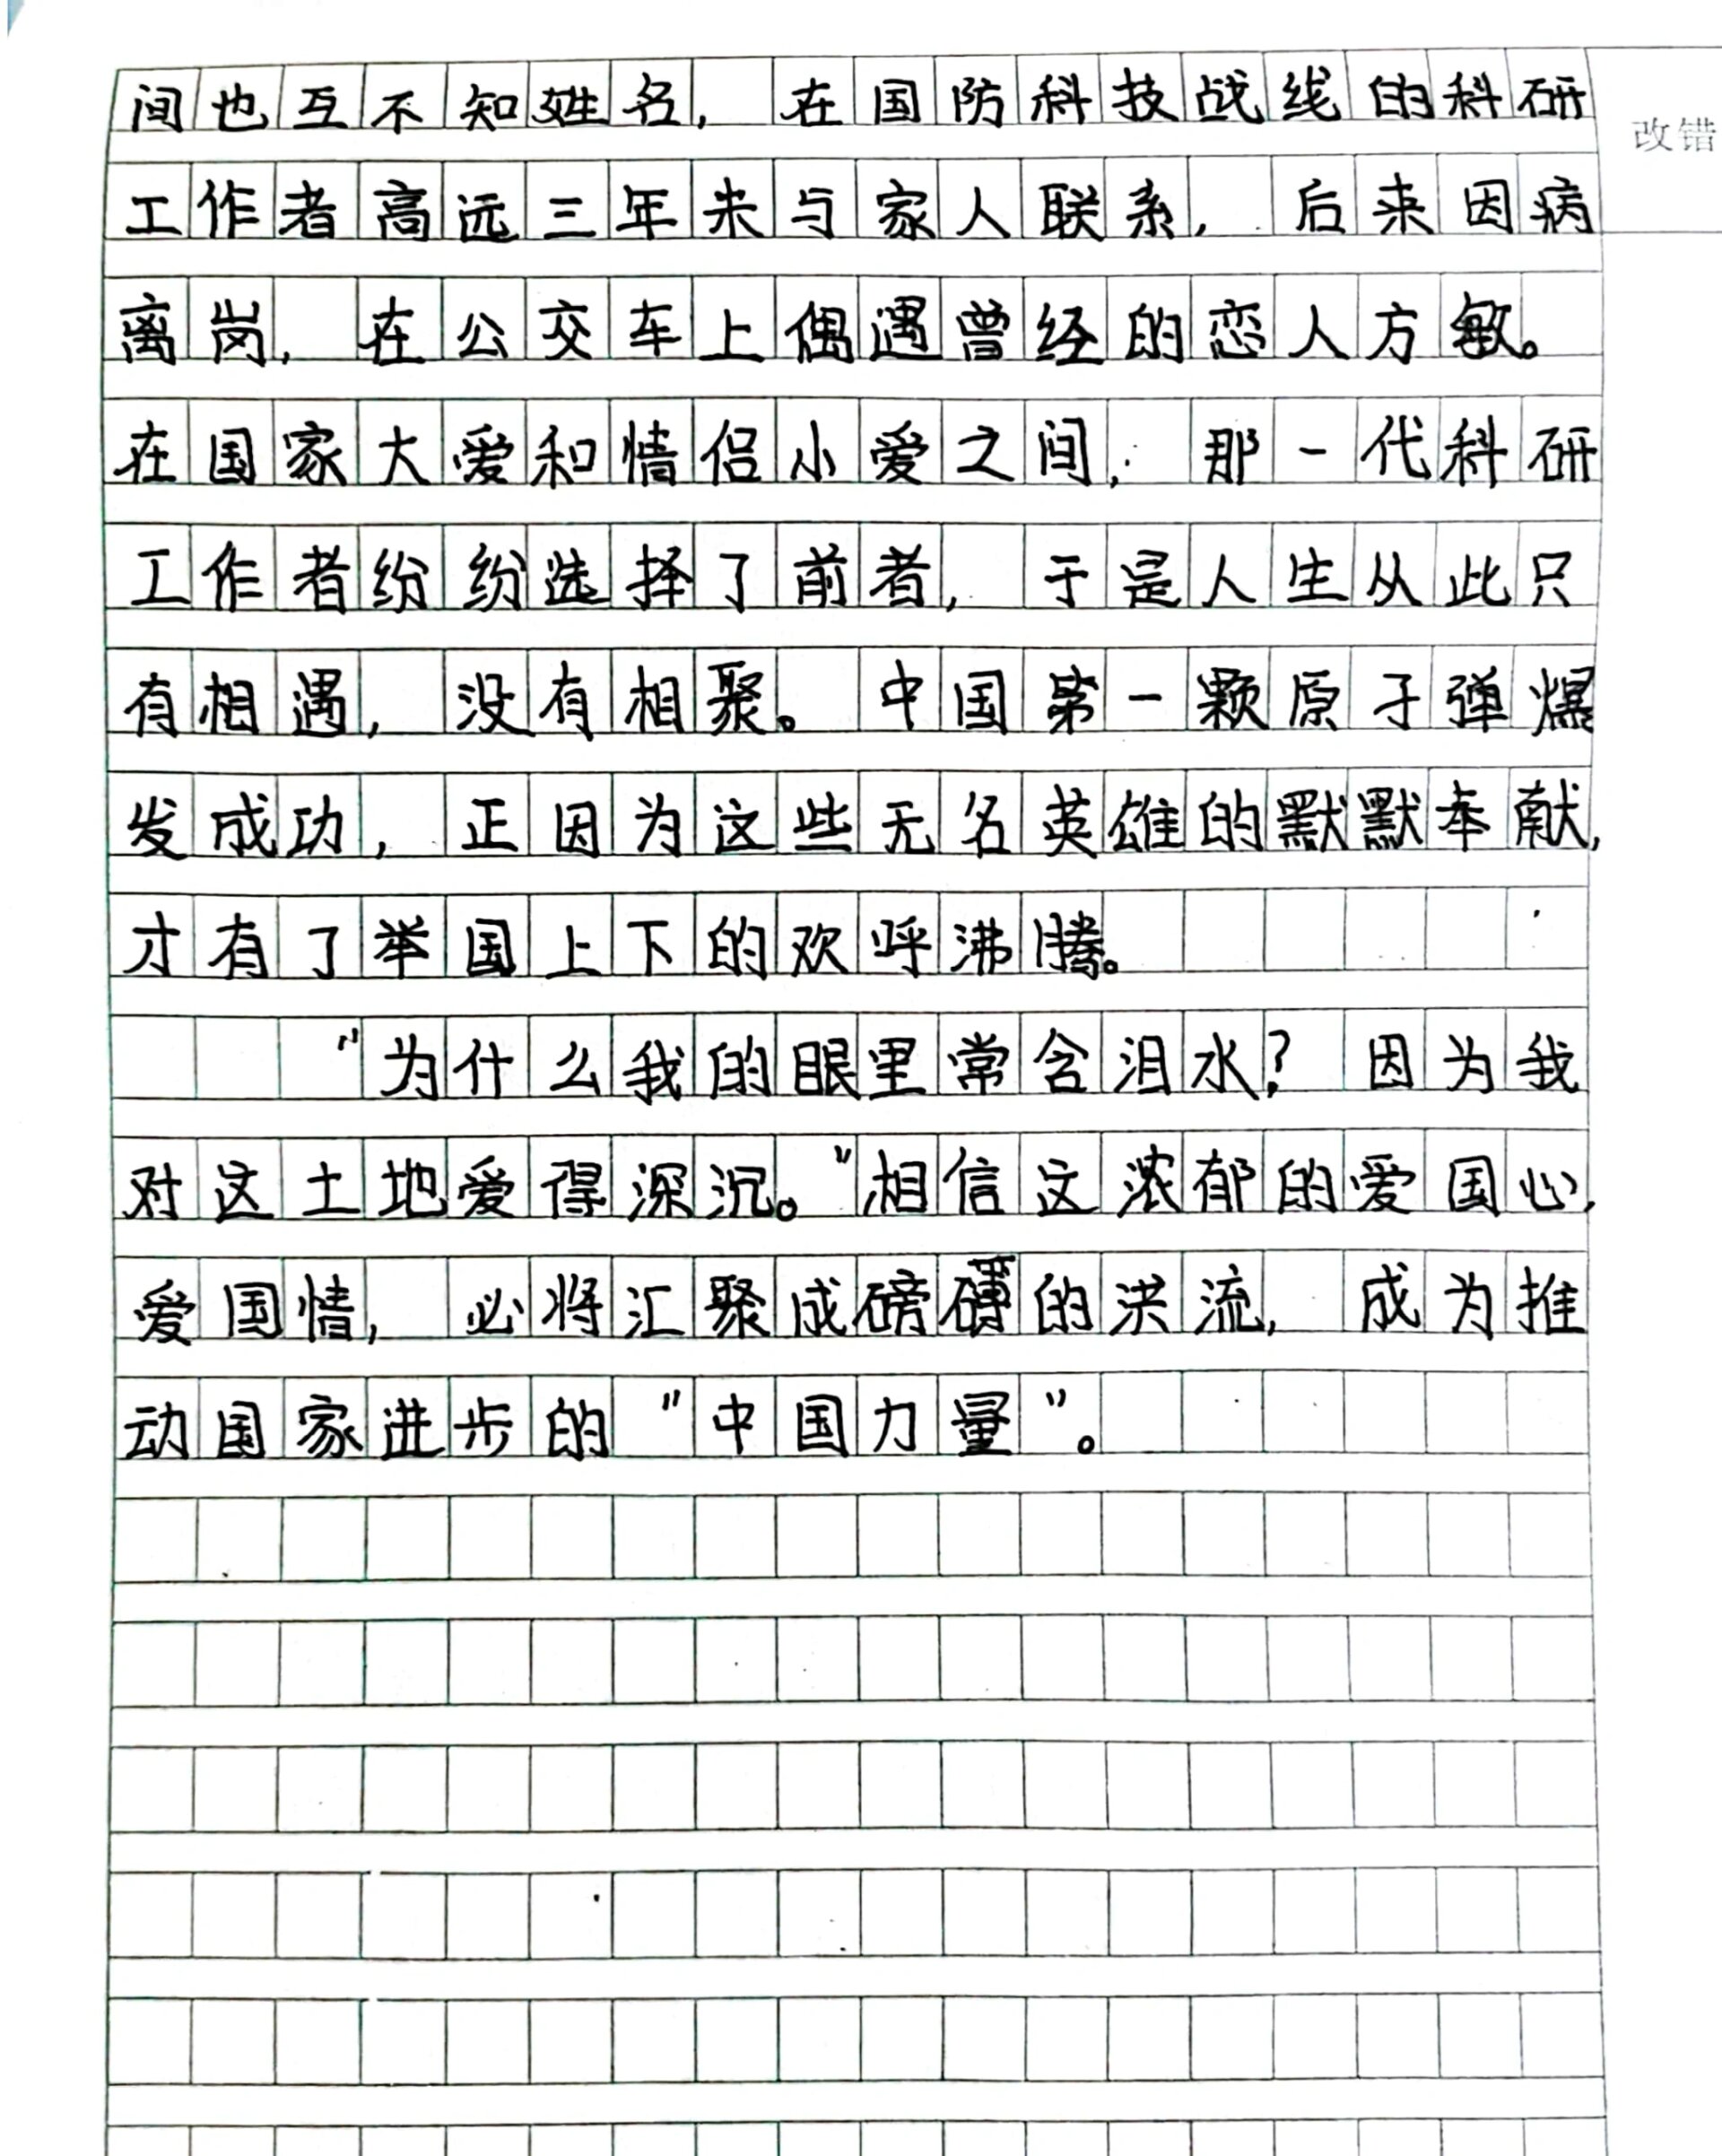 间也互不知姓名，在国防科技战线的科研
改错
工作者高远三年未与家人联系，后来因病
离岗，在公交车上偶遇曾经的恋人方敏。
在国家大爱和情侣小爱之间，那一代科研
工作者纷纷选择了前者，于是人生从此只
有相遇，没有相聚。中国第一颗原子弹爆
发成功，正因为这些无名英雄的默默奉献，
才有了举国上下的欢呼沸腾。
“为什么我的眼里常含泪水？因为我
对这土地爱得深沉。”相信这浓郁的爱国心，
爱国情，必将汇聚成磅礴的洪流，成为推
动国家进步的“中国力量”。